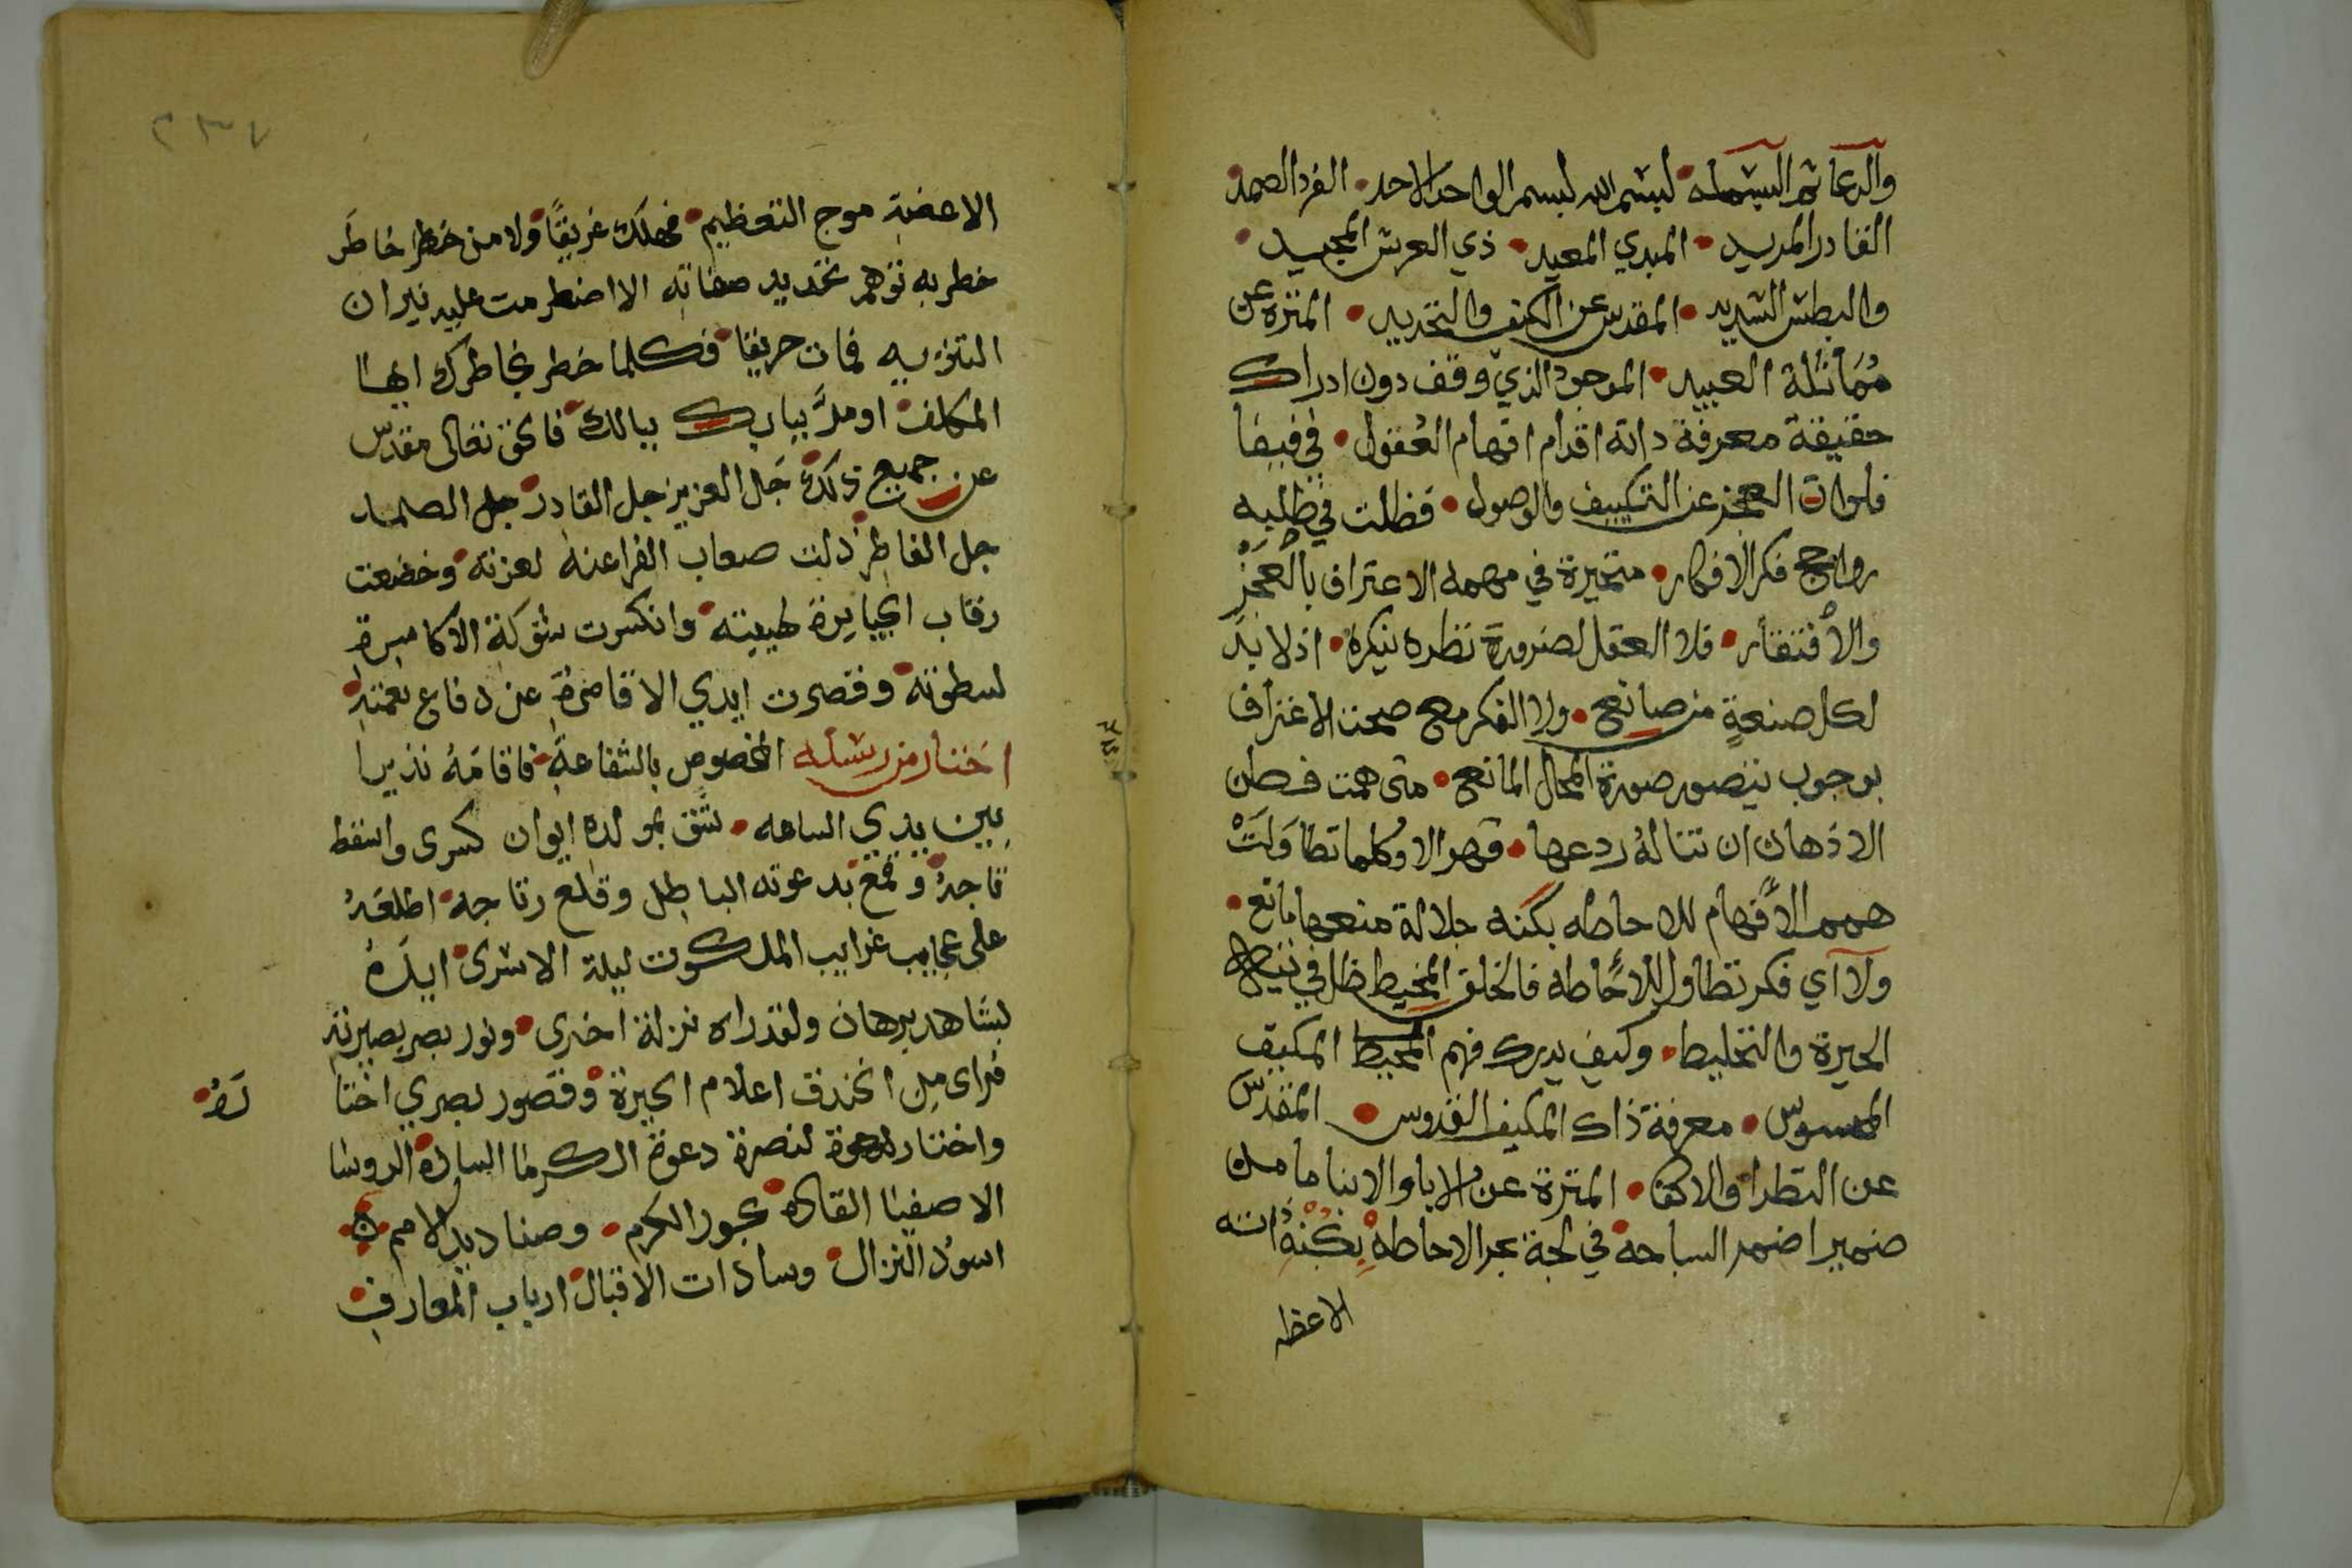 والدعا ثم البسمله لبسم الله لبسم الواحد الاحد الفرد الصمد
القادر المريد المبدي المعيد ذي العرش المجيد
والبطش الشديد المقدس عن الكيف والتحديد المنزه عن
مُمَاثلة العبيد الموجود الذي وقف دون ادراك
حقيقة معرفة ذاته اقدام افهام العُقول في فيفا
فلوات العجز عن التكييف والوصول فظلت في
فكر الافكار متحيرة في مهمه الاعتراف بالعَجْز
والأفتقار فلا العقل لضرورة نظره ينكره اذ لا بدّ
لكل صنعةٍ من صانع ولا الفكر مع صحت الاعتراف
بوجوب يتصور صورة المحال المانع متى همت فطن
الاذهان ان تناله ردعها قهر الا وكلما تطاوَلَتْ
همم الأفهام للاحاطه بكنه جلالة منعها مانع
ولا اي فكر تطاول للاحاطه فالخلق المحيط ظل في تيه
الحيرة والتخليط وكيف يدرك فهم المحيط المكيف
المسوس معرفة ذاك المكيف القدوس المقدس
عن النظرا والاكفا المنزه عن الابا والابنا ما من
ضمير اضمر السباحة في لجة بحر الاحاطه بكُنْهِ ذاته
الاعظ
٢٣٧
الاعضبه موج التعظيم فهلك غريقًا ولا من خطر خاطَر
خطر به توهم تحديد صفاته الا اضطرمت عليه نيران
التنزيه فمات حريقا فكلما خطر بخاطرك ايها
المكلف او مرَّ ببابك ببالك فالحق تعالى مقدس
عن جميع ذلك جَل العزيز جل القادر جل الصمد
جل الفاطر ذلت صعاب الفراعنه لعزته وخضعت
رقاب الجبابرة لهيبته وانكسرت شوكة الاكاسرة
لسطوته وقصرت ايدي الاقاصرة عن دفاع نعمته
اختار من رسله المخصوص بالشفاعة فاقامَهُ نذيرا
بين يدي الساعه شق بمولده ايوان كسرى واسقط
تاجهُ وقمع بدعوته الباطل وقلع رتاجه اطلعَهُ
على عجايب غرايب الملكوت ليلة الاسرى ايدَهُ
بشاهد برهان ولقد راه نزلة اخرى ونور بصر بصيرته
فراى من الخندق اعلام الحيرة وقصور بصري اختا
رَهُ
واختار لدعوة لنصرة دعوة الكرما السادة الروسا
الاصفيا القاده بحور الكرم وصناديد الامم
اسوُد النزال وسادات الاقبال ارباب المعارف